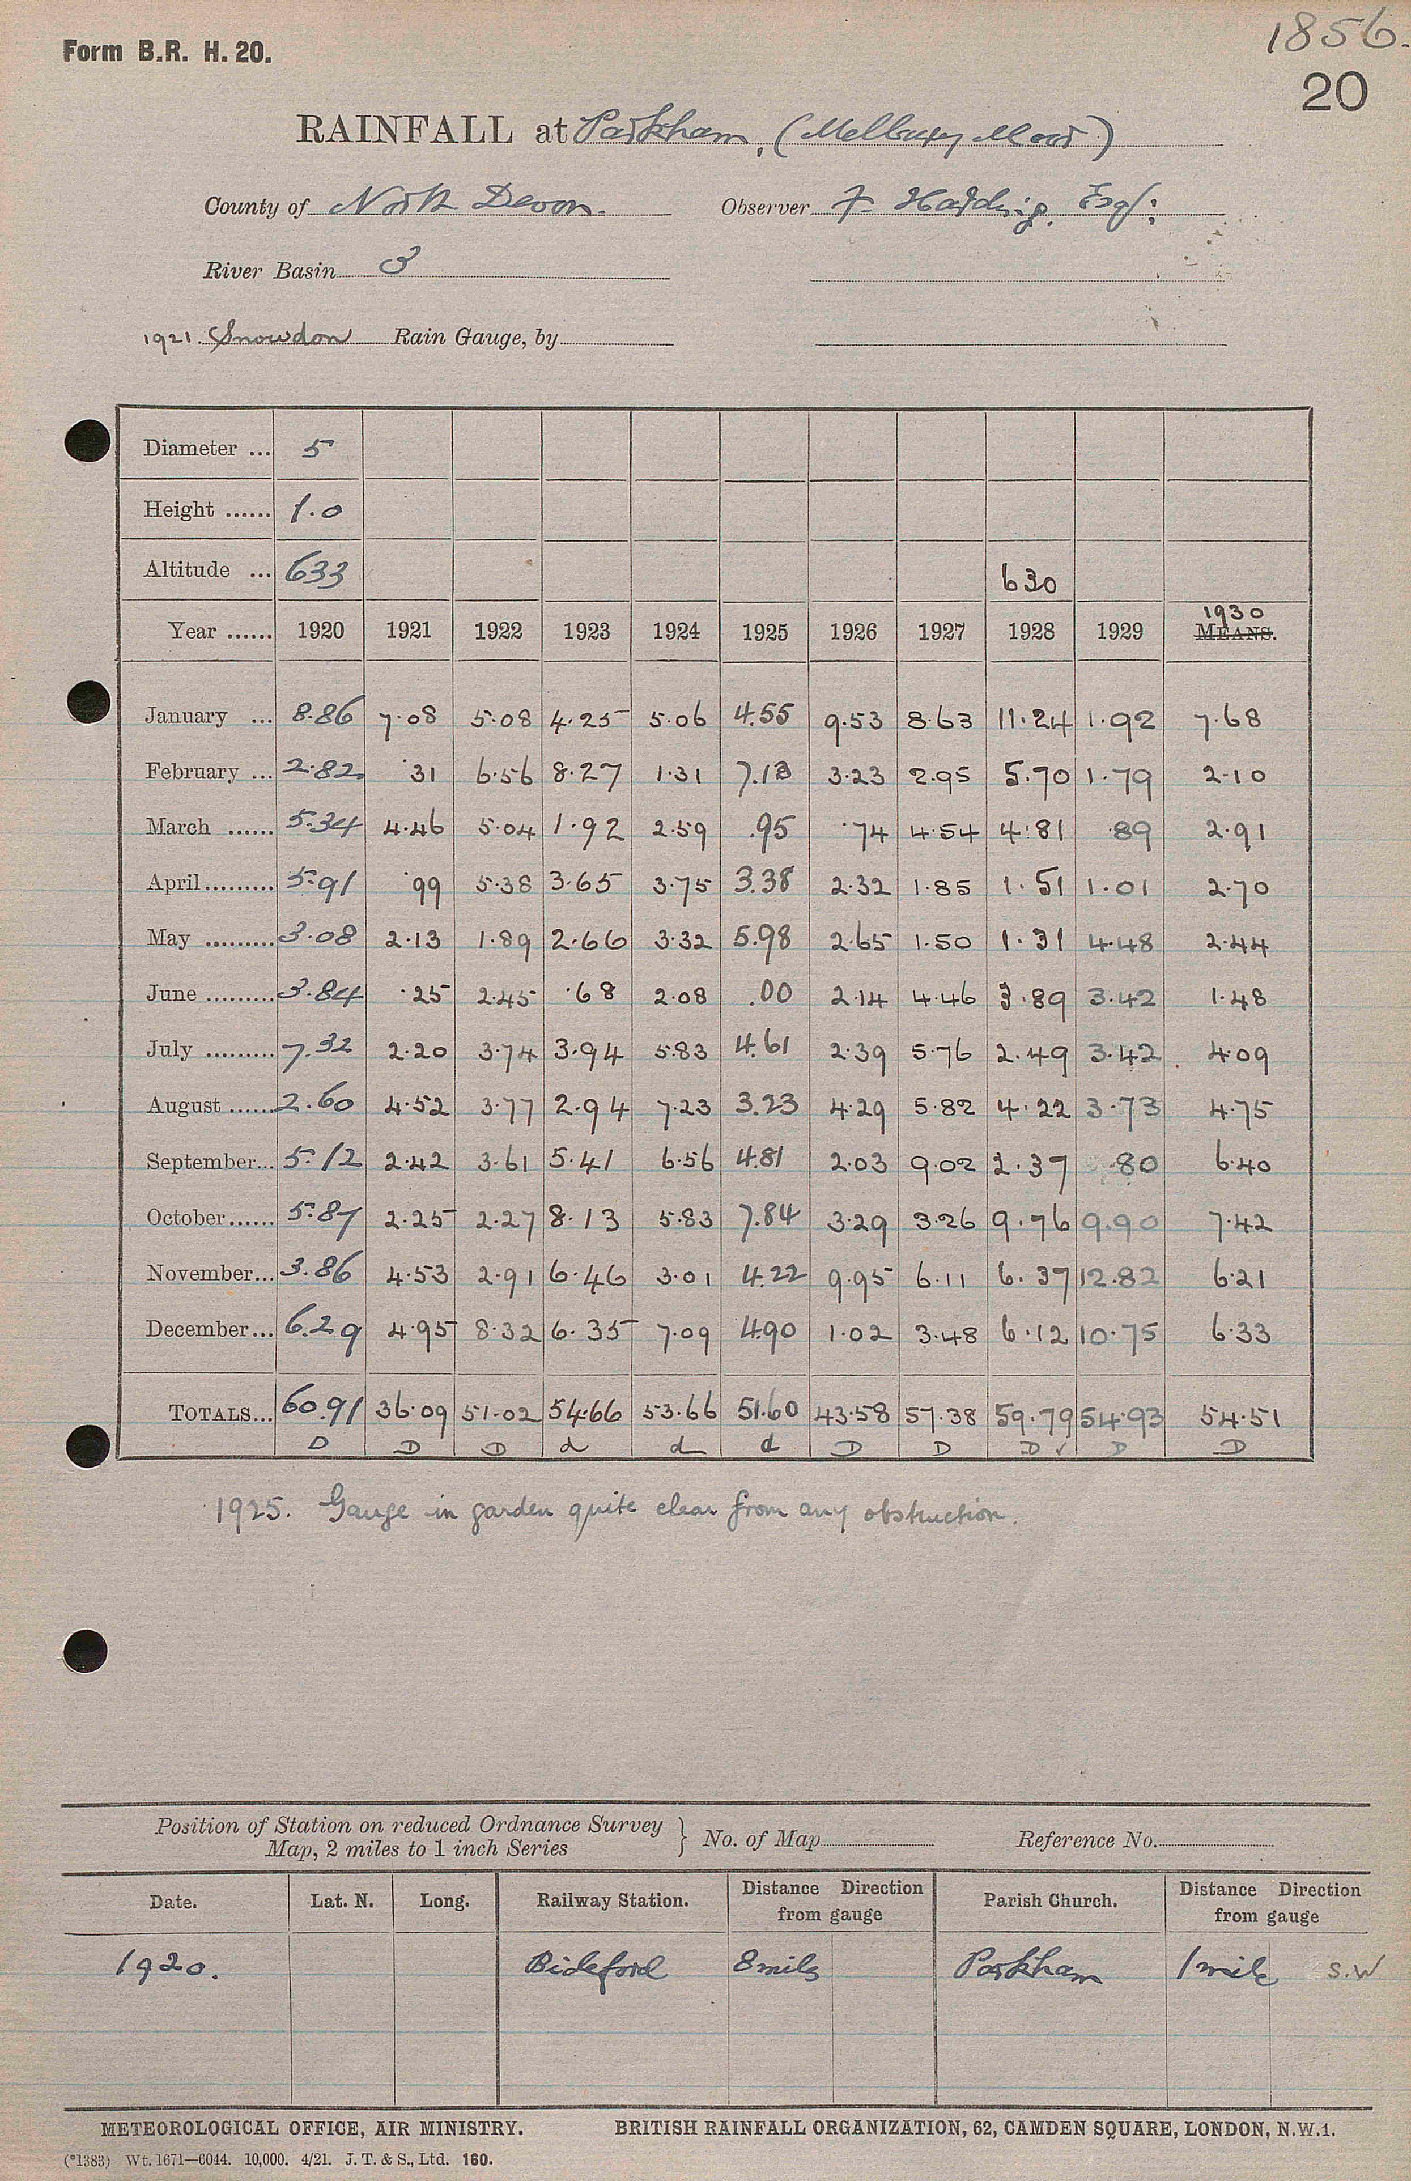 1856.
Form B.R. H. 20.
20
RAINFALL at Parkham, (Melbury Moor)
County of North Devon. Observer F. Harding. Esq:
River Basin 3
1921. Snowdon Rain Gauge, by
Diameter ... 5
Height ...... 1.0
Altitude ... 633 630
1930
Year ...... 1920 1921 1922 1923 1924 1925 1926 1927 1928 1929 MEANS.
January ... 8.86 7.08 5.08 4.25 5.06 4.55 9.53 8.63 11.24 1.92 7.68
February ... 2.82 .31 6.56 8.27 1.31 7.13 3.23 2.95 5.70 1.79 2.10
March ...... 5.34 4.46 5.04 1.92 2.59 .95 .74 4.54 4.81 .89 2.91
April ......... 5.91 .99 5.38 3.65 3.75 3.38 2.32 1.85 1.51 1.01 2.70
May ......... 3.08 2.13 1.89 2.66 3.32 5.98 2.65 1.50 1.31 4.48 2.44
June ......... 3.84 .25 2.45 .68 2.08 .00 2.14 4.46 3.89 3.42 1.48
July ......... 7.32 2.20 3.74 3.94 5.83 4.61 2.39 5.76 2.49 3.42 4.09
August ...... 2.60 4.52 3.77 2.94 7.23 3.23 4.29 5.82 4.22 3.73 4.75
September... 5.12 2.42 3.61 5.41 6.56 4.81 2.03 9.02 2.37 .80 6.40
October...... 5.87 2.25 2.27 8.13 5.83 7.84 3.29 3.26 9.76 9.90 7.42
November... 3.86 4.53 2.91 6.46 3.01 4.22 9.95 6.11 6.37 12.82 6.21
December... 6.29 4.95 8.32 6.35 7.09 4.90 1.02 3.48 6.12 10.75 6.33
TOTALS... 60.91 36.09 51.02 54.66 53.66 51.60 43.58 57.38 59.79 54.93 54.51
D D D d d d D D D ✓ D D
1925. Gauge in garden quite clear from any obstruction.
Position of Station on reduced Ordnance Survey
Map, 2 miles to 1 inch Series } No. of Map Reference No.
Date. Lat. N. Long. Railway Station. Distance Direction from gauge Parish Church. Distance Direction from gauge
1920. Bideford 8 miles Parkham 1 mile S.W
METEOROLOGICAL OFFICE, AIR MINISTRY. BRITISH RAINFALL ORGANIZATION, 62, CAMDEN SQUARE, LONDON, N.W.1.
(*1383) Wt. 1671—6044. 10,000. 4/21. J. T. & S., Ltd. 160.